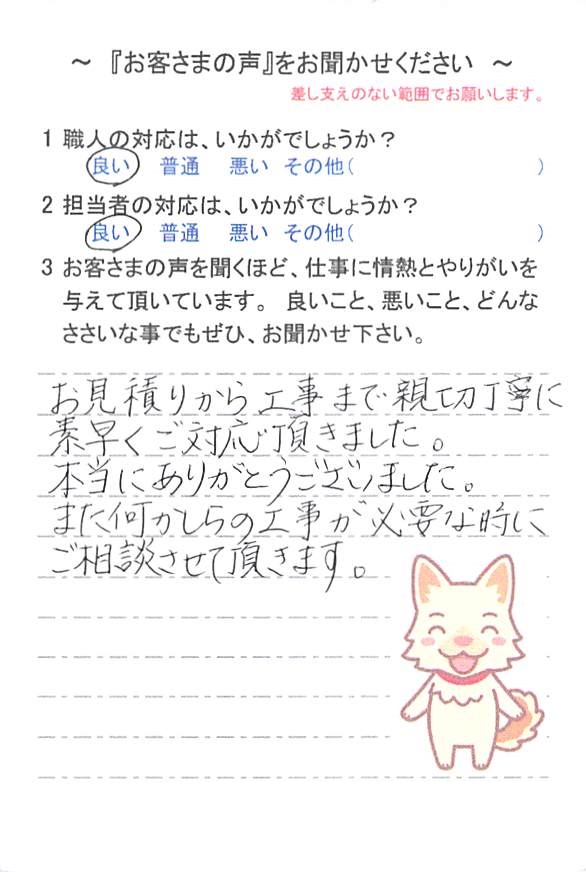 ～ 『お客さまの声』をお聞かせください ～
差し支えのない範囲でお願いします。
1 職人の対応は、いかがでしょうか？
良い 普通 悪い その他( )
2 担当者の対応は、いかがでしょうか？
良い 普通 悪い その他( )
3 お客さまの声を聞くほど、仕事に情熱とやりがいを
与えて頂いています。 良いこと、悪いこと、どんな
ささいな事でもぜひ、お聞かせ下さい。
お見積りから工事まで親切丁寧に
素早くご対応頂きました。
本当にありがとうございました。
また何かしらの工事が必要な時に
ご相談させて頂きます。